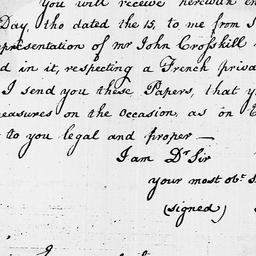 You will receive herewith en
Day, tho dated the 15, to me from
presentation of mr John Crosskill
d in it, respecting a French priva
I send you these Papers, that y
easures on the occasion, as on
to you legal and proper—
I am Dr Sir
your most obt. s
(signed)